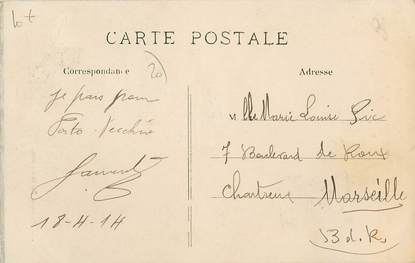 CARTE POSTALE
Correspondance
Je pars pour
Porto-Vecchio
18-4-14
Adresse
Mlle Marie Louise Pic
7 Boulevard de Roux
Chartreux Marseille
B.d.R.
20